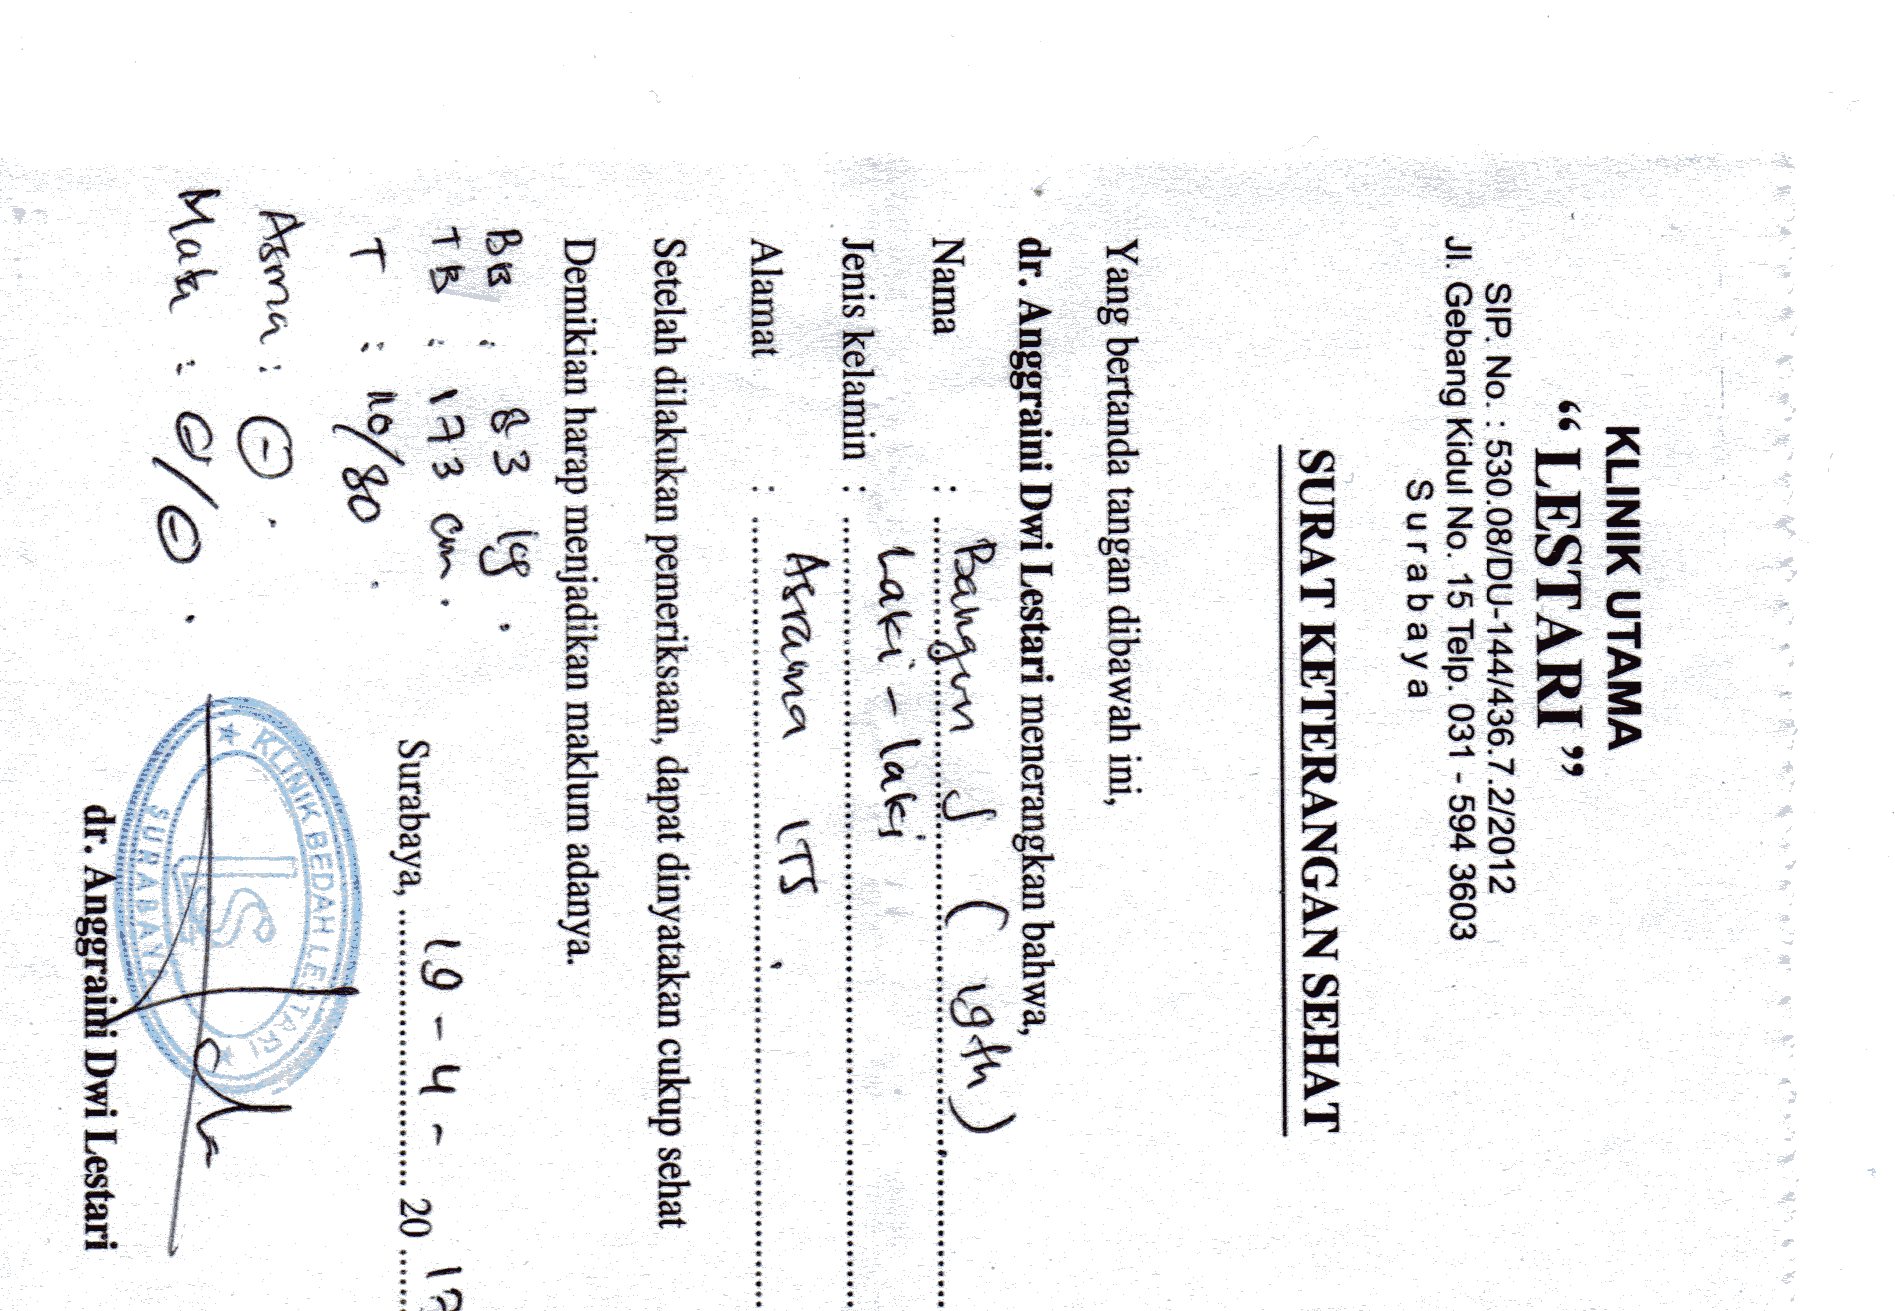 KLINIK UTAMA
“ LESTARI ”
SIP. No. : 530.08/DU-144/436.7.2/2012
Jl. Gebang Kidul No. 15 Telp. 031 - 594 3603
Surabaya
SURAT KETERANGAN SEHAT
Yang bertanda tangan dibawah ini,
dr. Anggraini Dwi Lestari menerangkan bahwa,
Nama : Bangun S (19th)
Jenis kelamin : Laki - laki
Alamat : Asrama ITS.
Setelah dilakukan pemeriksaan, dapat dinyatakan cukup sehat
Demikian harap menjadikan maklum adanya.
BB : 83 kg.
TB : 173 cm.
T : 110/80.
Asma : (-).
Mata : (-)/(-).
Surabaya, 19 - 4 - 20
KLINIK BEDAH LESTARI
SURABAYA
dr. Anggraini Dwi Lestari